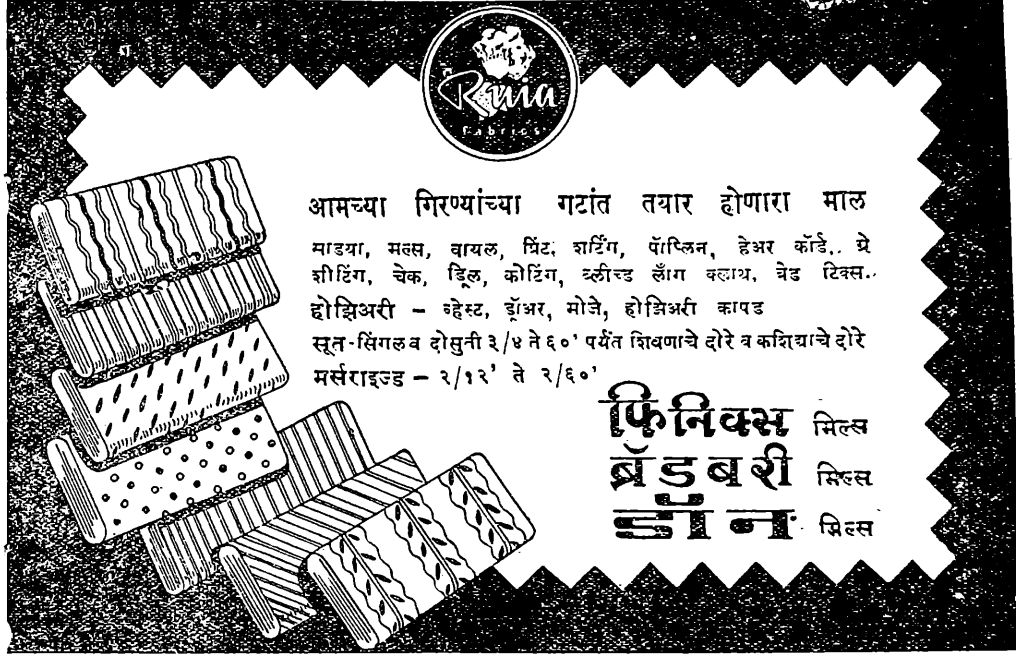 Ruia
Fabrics
आमच्या गिरण्यांच्या गटांत तयार होणारा माल
साडया, मल्स, वायल, प्रिंट, शर्टिंग, पॉप्लिन, हेअर कॉर्ड.. ग्रे
शीटिंग, चेक, ड्रिल, कोटिंग, ब्लीच्ड लाँग क्लाथ, बेड टिक्स..
होझिअरी – व्हेस्ट, ड्रॉअर, मोजे, होझिअरी कापड
सूत-सिंगल व दोसुती ३/४ ते ६०' पर्यंत शिवणाचे दोरे व कशियाचे दोरे
मर्सराइज्ड – २/१२' ते २/६०'
फिनिक्स मिल्स
ब्रॅडबरी मिल्स
डॉन मिल्स